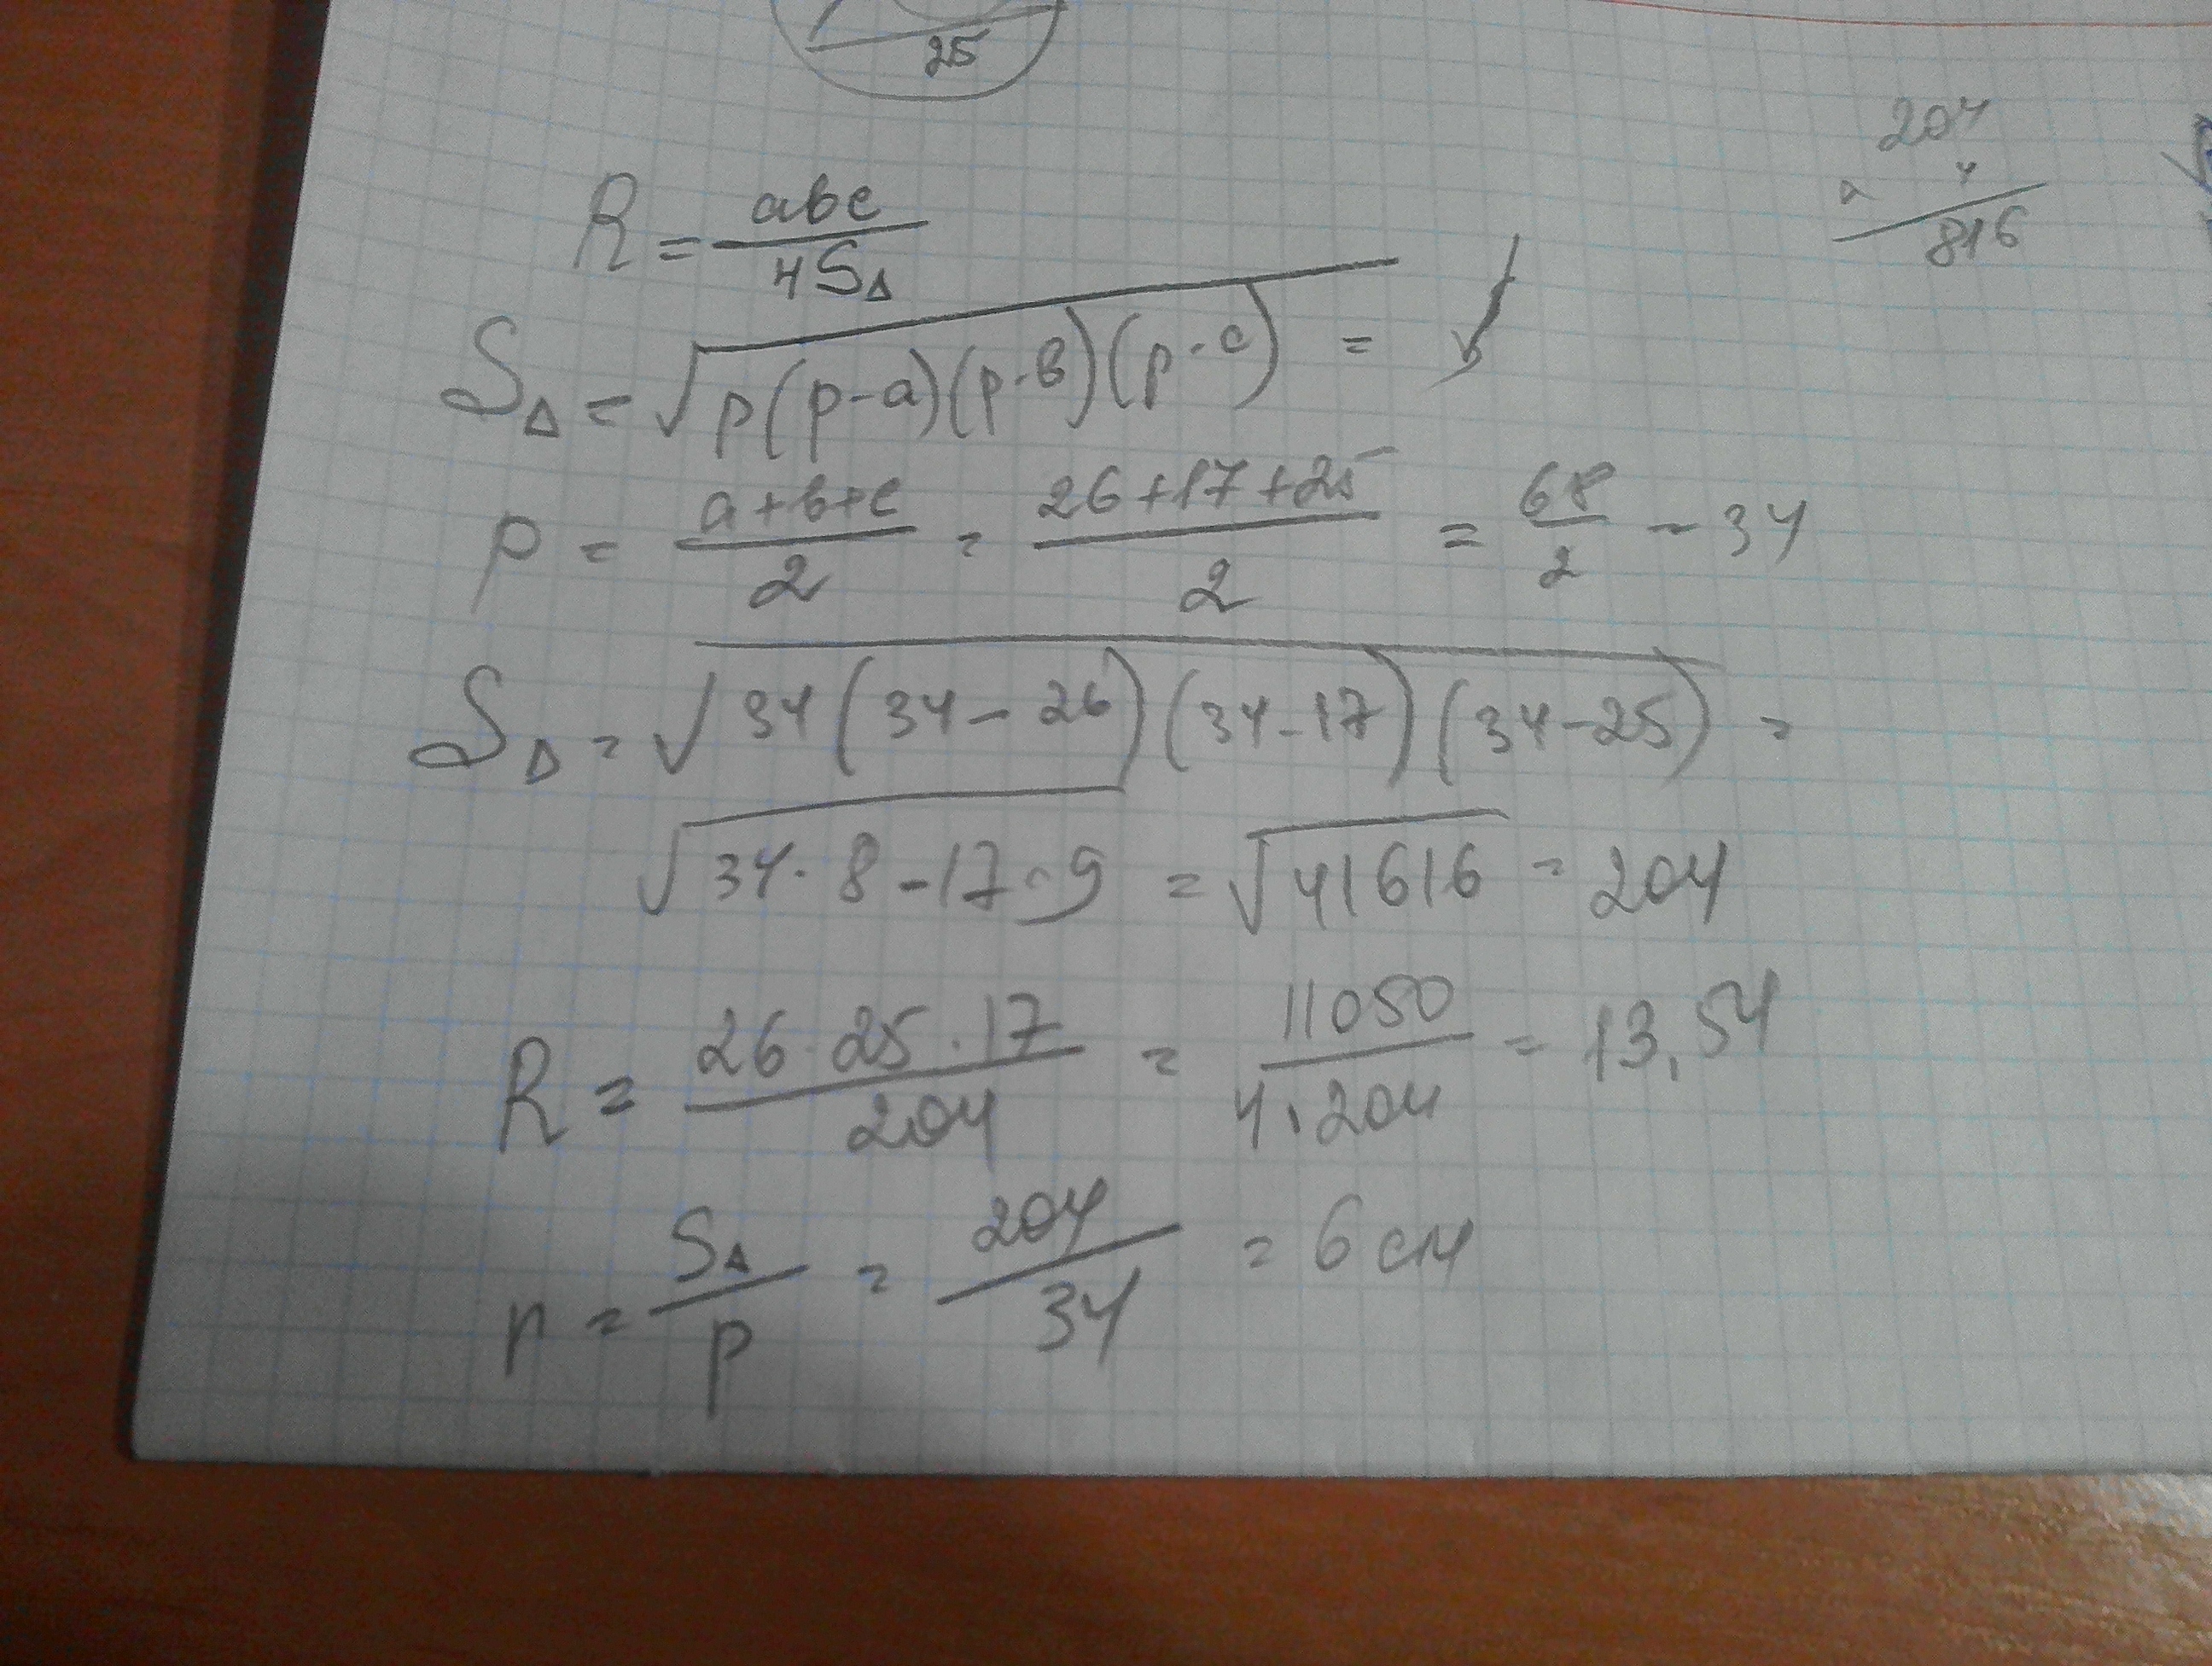 25
204
× 4
816
R = abc / 4S△
S△ = √p(p-a)(p-b)(p-c) =
p = a+b+c / 2 = 26+17+25 / 2 = 68 / 2 - 34
S△ = √34(34-26)(34-17)(34-25) =
√34·8-17·9 = √41616 = 204
R = 26·25·17 / 204 = 11050 / 4·204 = 13,54
r = S△ / p = 204 / 34 = 6 см